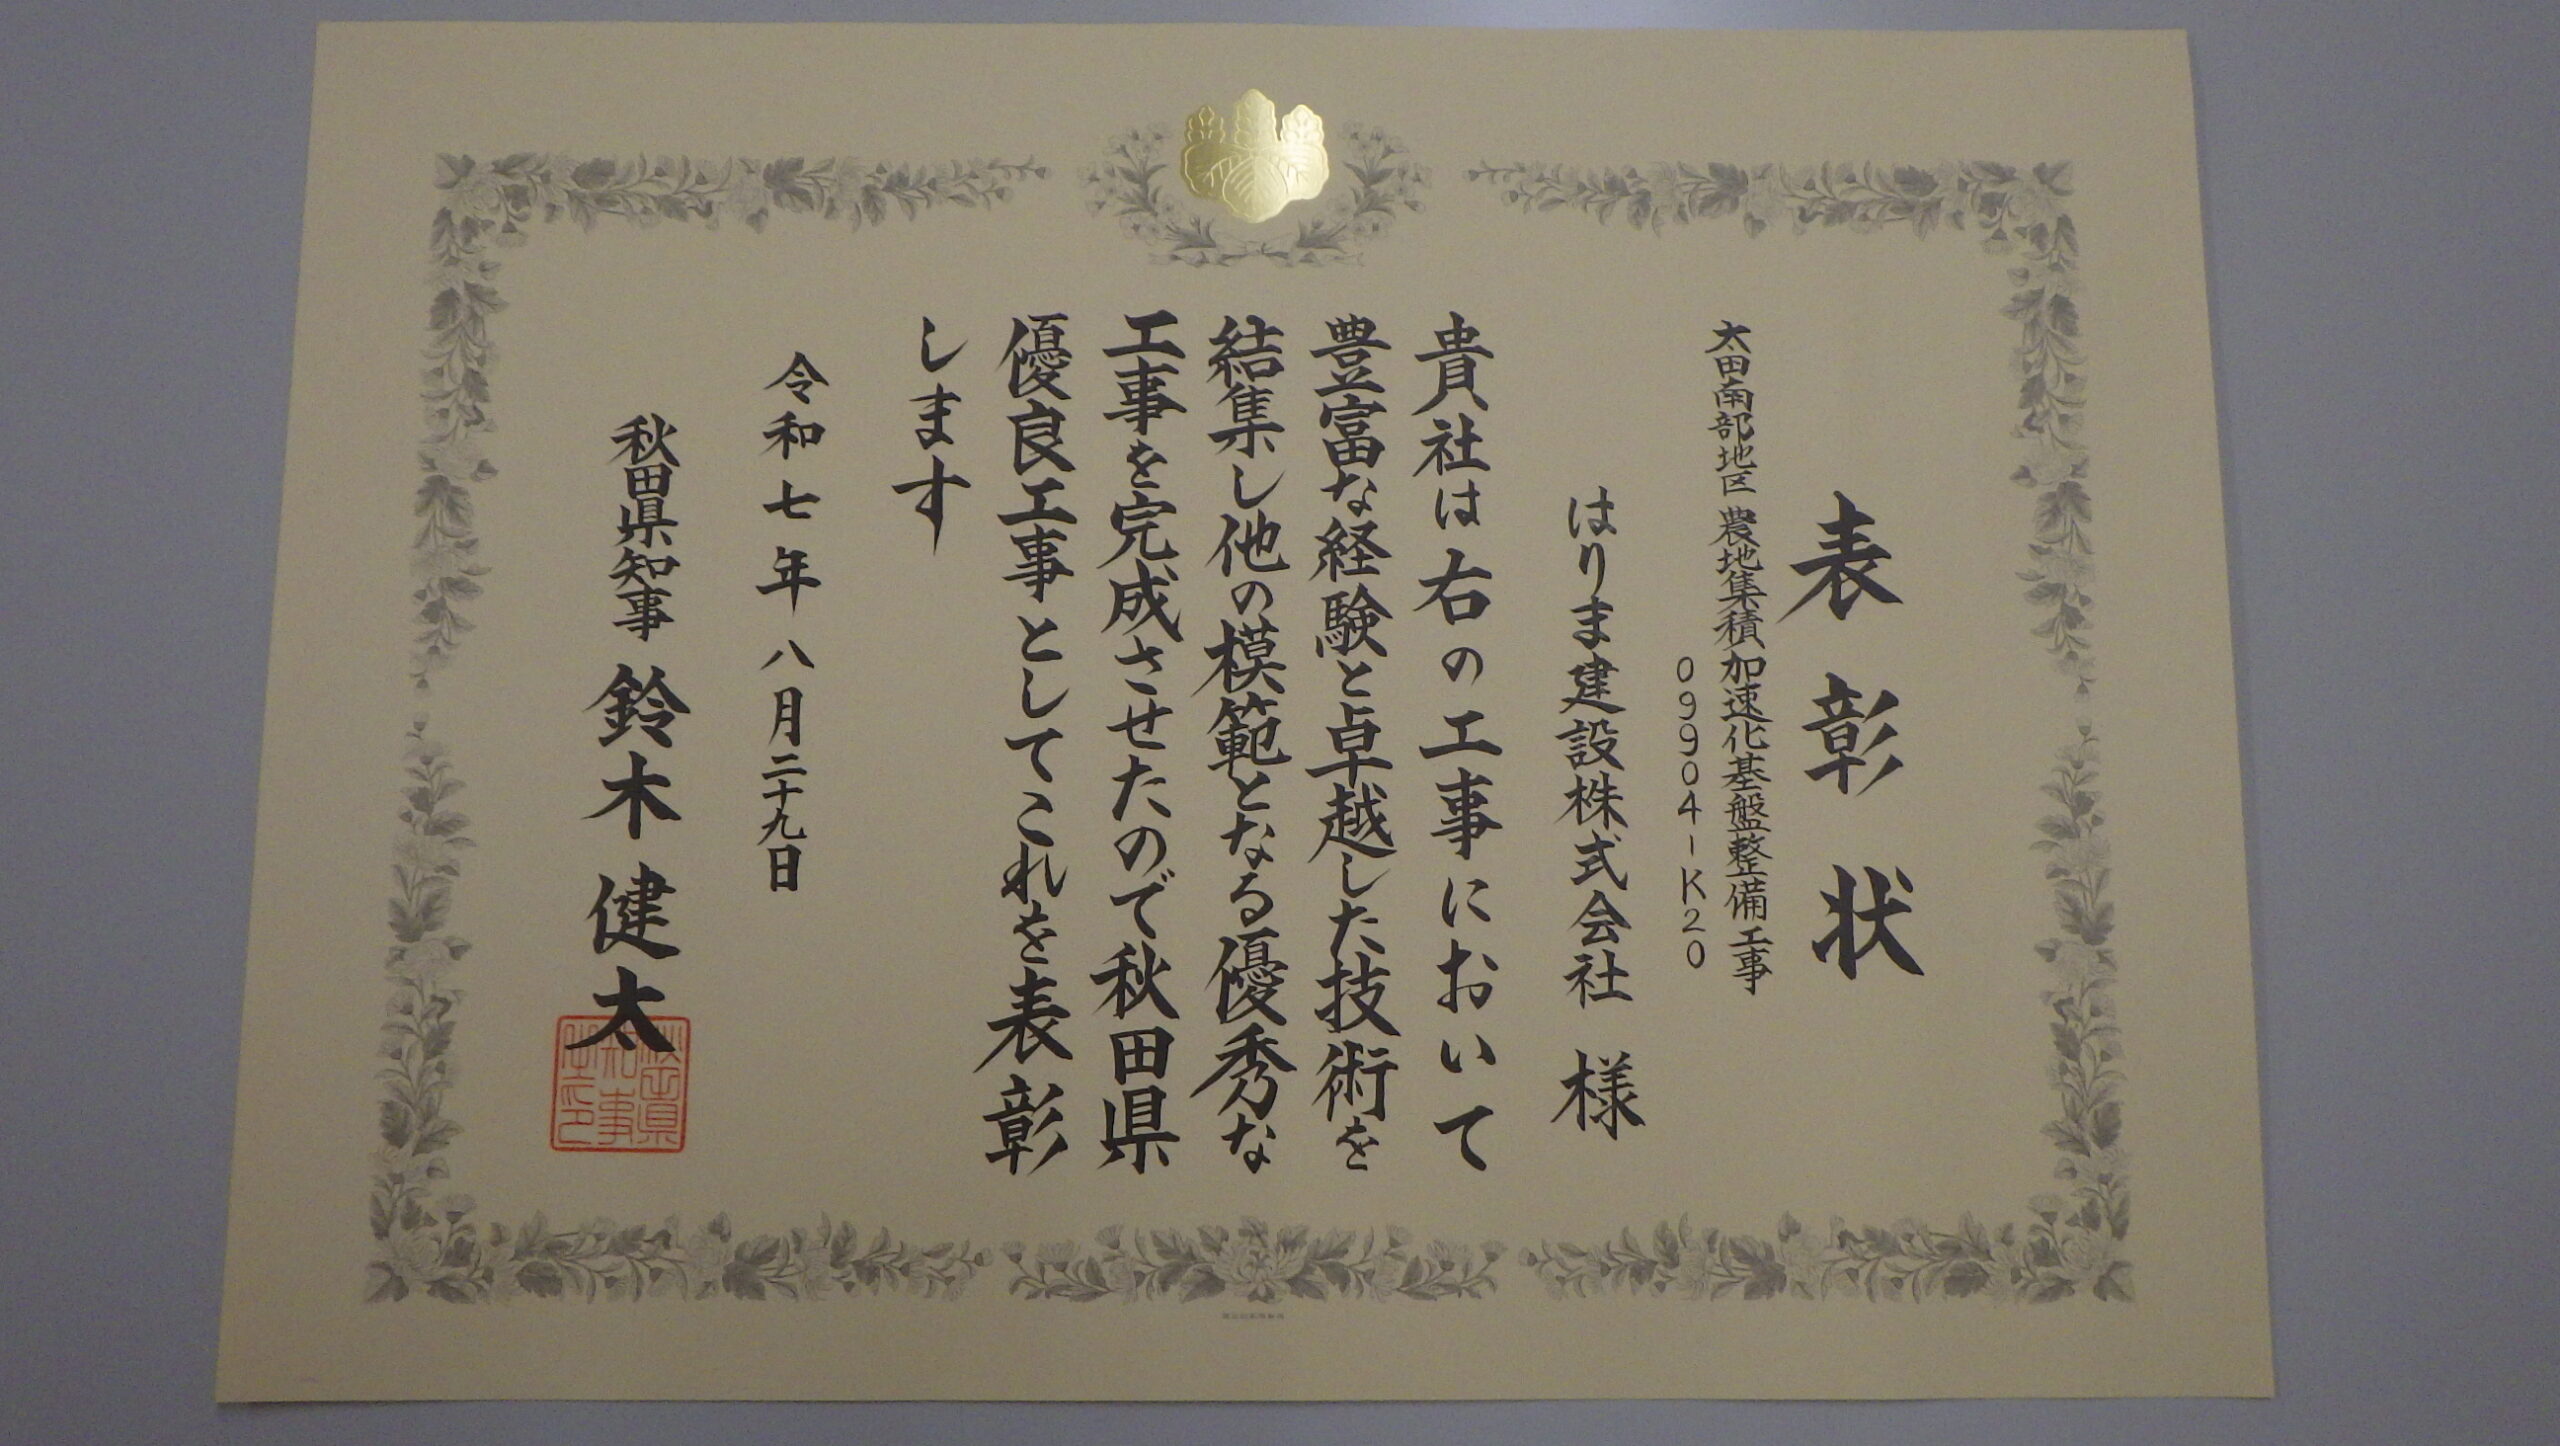 表彰状
太田南部地区 農地集積加速化基盤整備工事
09904-K20
はりま建設株式会社 様
貴社は右の工事において
豊富な経験と卓越した技術を
結集し他の模範となる優秀な
工事を完成させたので秋田県
優良工事としてこれを表彰
します
令和七年八月二十九日
秋田県知事 鈴木健太